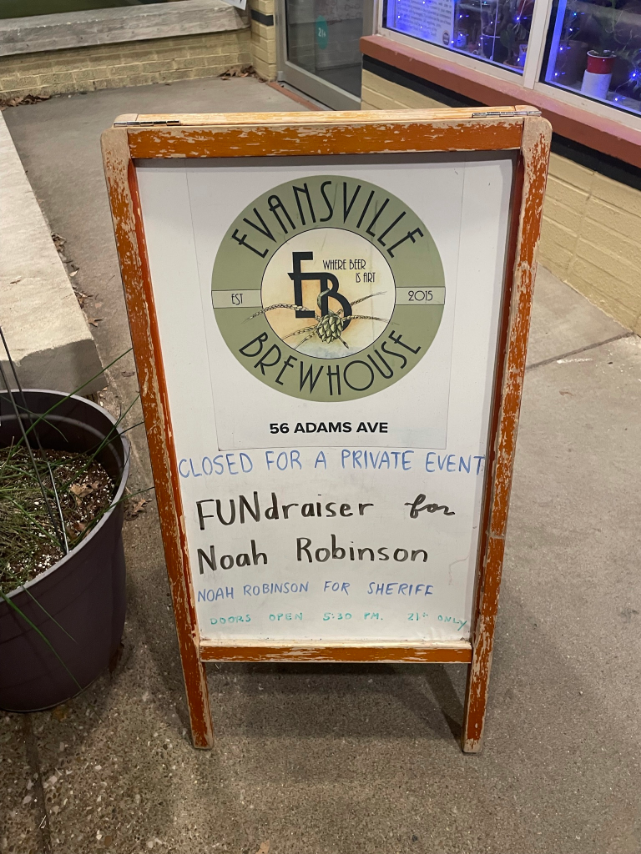 EVANSVILLE
WHERE BEER
IS ART
EB
EST 2015
BREWHOUSE
56 ADAMS AVE
CLOSED FOR A PRIVATE EVENT
FUNdraiser for
Noah Robinson
NOAH ROBINSON FOR SHERIFF
DOORS OPEN 5:30 PM. 21+ ONLY